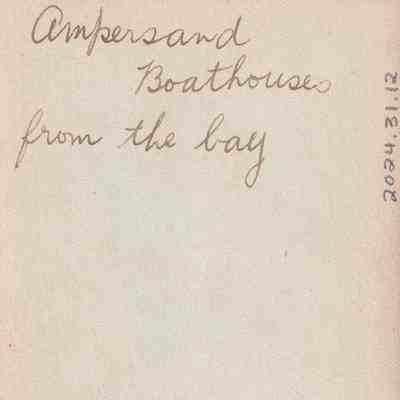 Ampersand
Boathouses
from the bay
2024.31.12